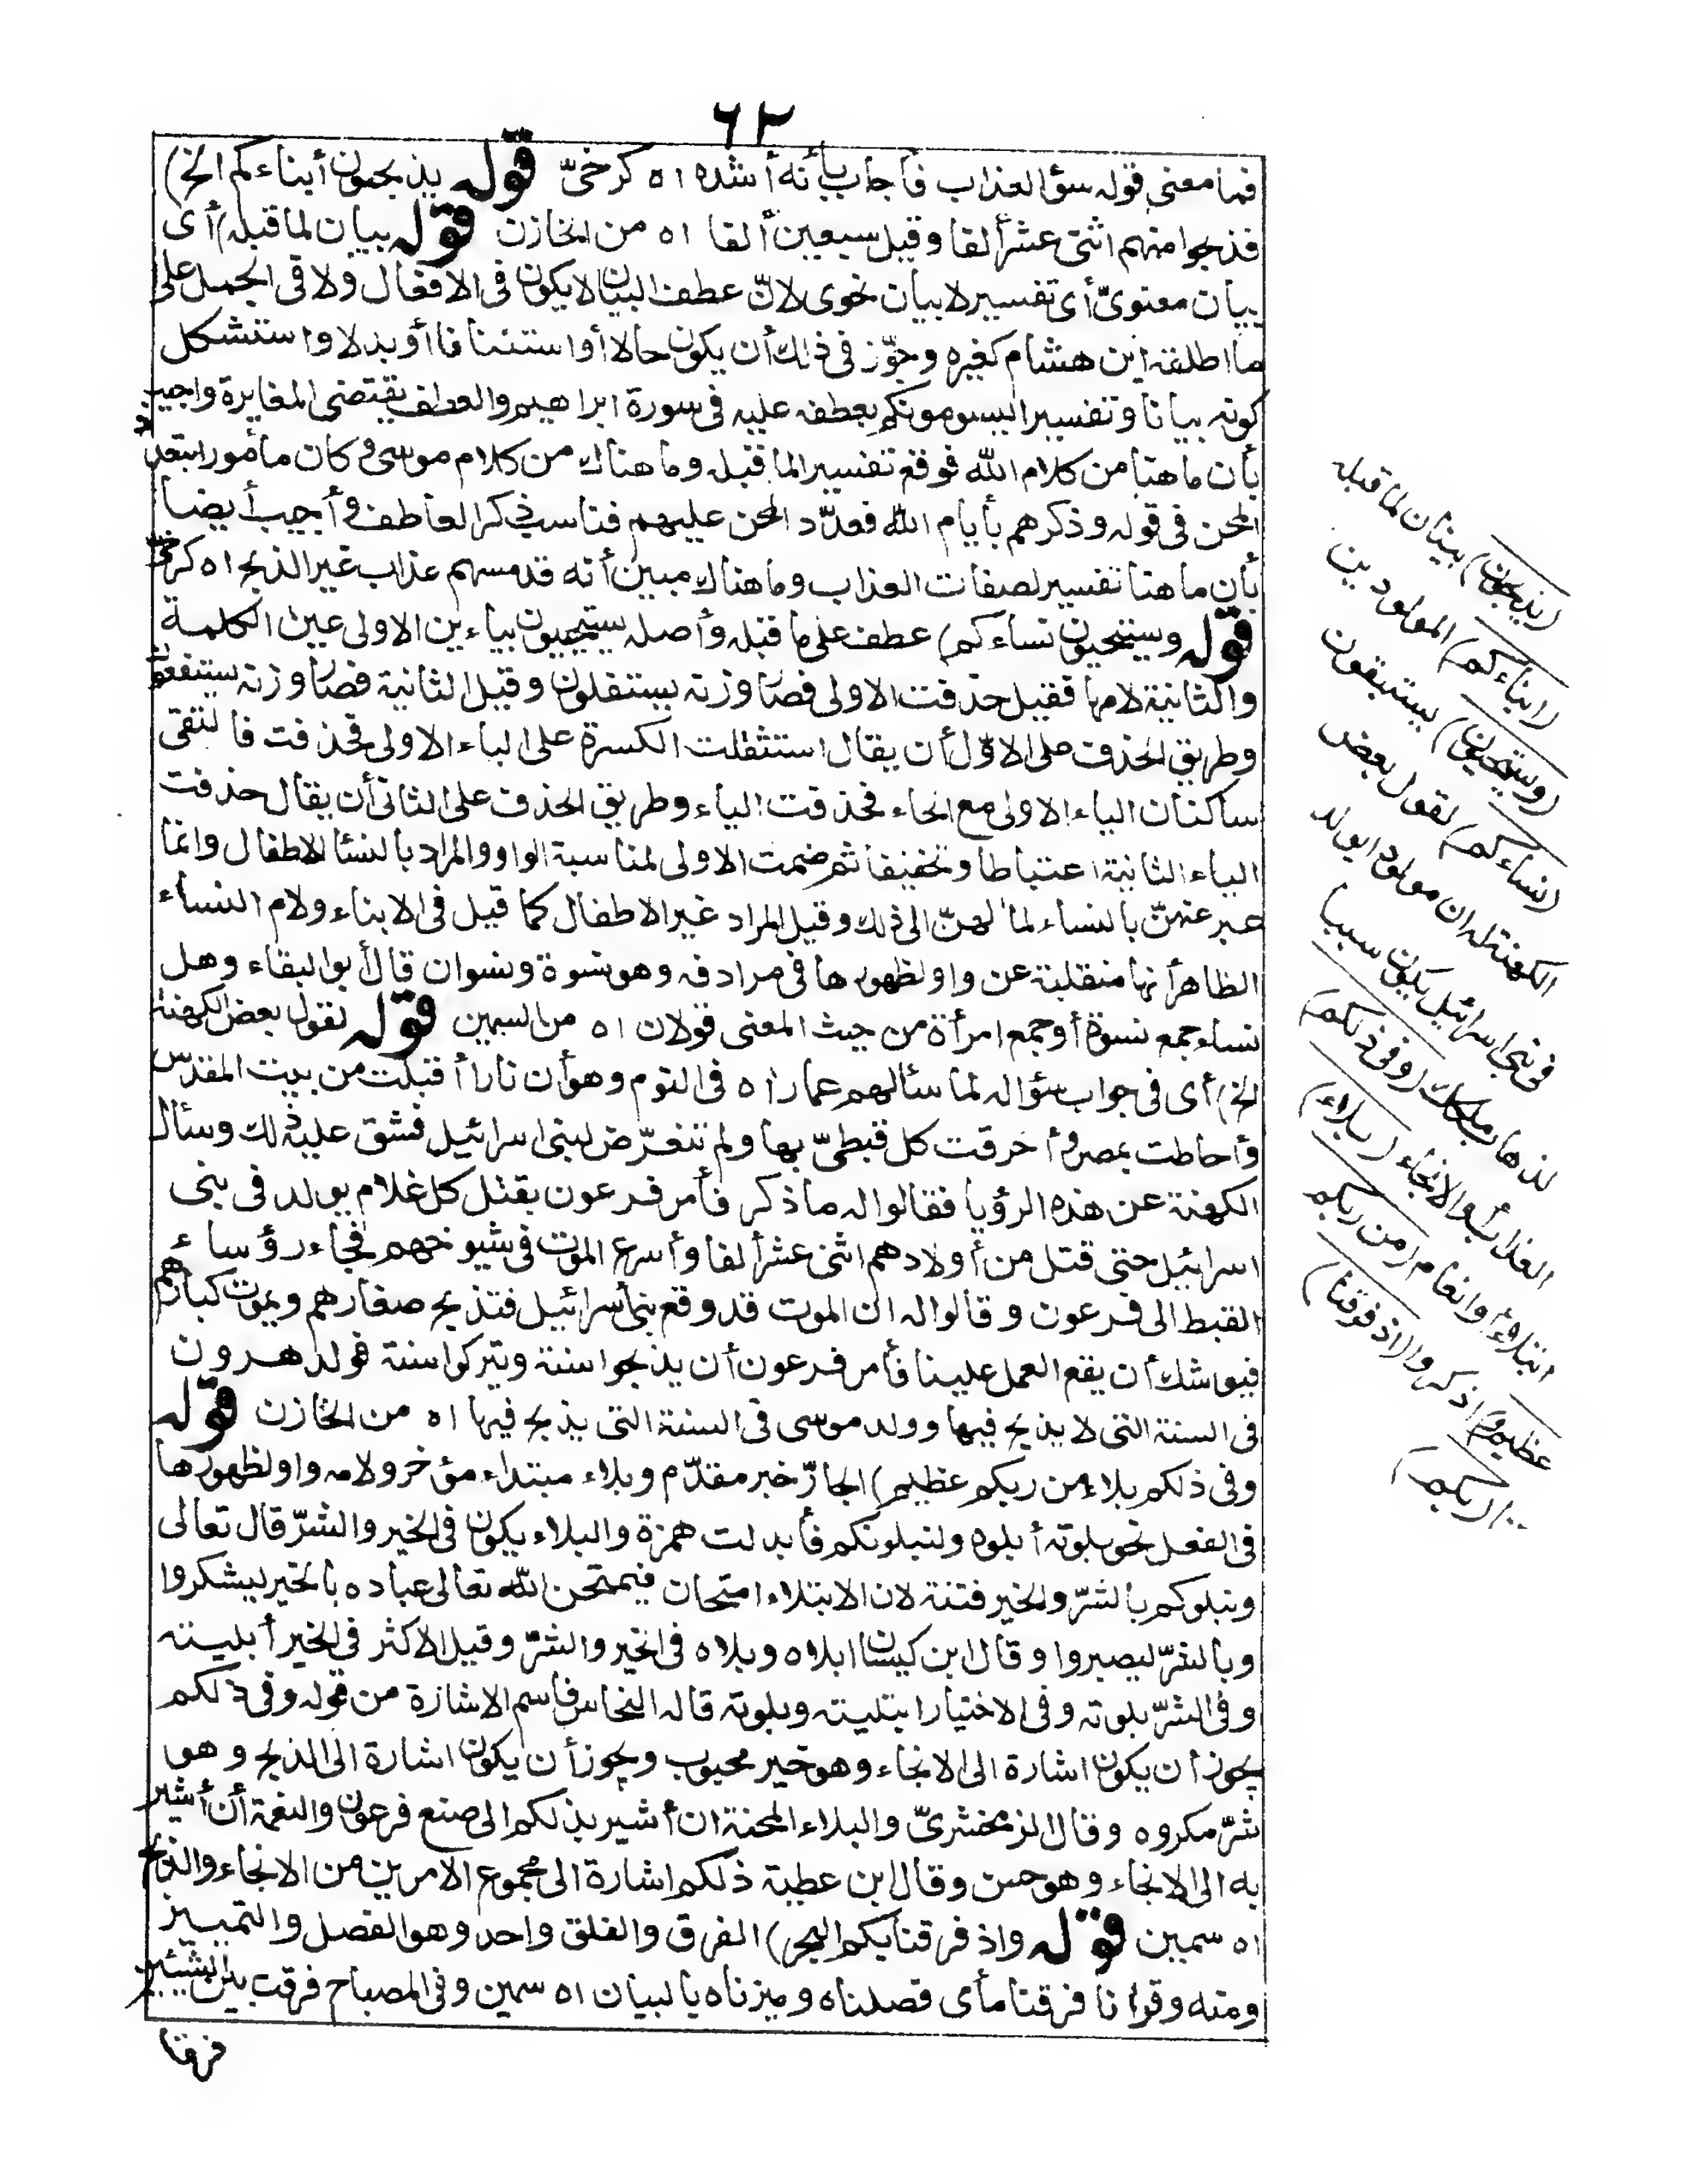 ٦٢
فما معنى قوله سؤ العذاب فأجاب بأنه أشده اه كرخىّ قوله يذبحون أبناءكم الخ)
فذبحوا منهم اثنى عشر ألفا وقيل سبعين ألفا اه من الخازن قوله بيان لما قبله) أى
بيان معنوىّ أى تفسير لا بيان نحوى لانّ عطف البيان لا يكون فى الافعال ولا فى الجمل على
ما اطلقه ابن هشام كغيره وجوّز فى ذلك أن يكون حالا أو استئنافا أو بدلا واستشكل
كونه بيانا وتفسيرا ليسومونكم بعطفه عليه فى سورة ابراهيم والعطف يقتضى المغايرة واجيب
بأن ما هنا من كلام الله فوقع تفسيرا لما قبله وما هناك من كلام موسى وكان مأمورا بتعداد
المحن فى قوله وذكرهم بأيام الله فعدّد المحن عليهم فناسب ذكر العاطف وأجيب أيضا
بأن ما هنا تفسير لصفات العذاب وما هناك مبين أنه قد مسهم عذاب غير الذبح اه كرخىّ
قوله ويستحيون نساءكم) عطف على ما قبله وأصله يستحييون بياءين الاولى عين الكلمة
والثانية لامها فقيل حذفت الاولى فصار وزنه يستفلون وقيل الثانية فصار وزنه يستفعون
وطريق الحذف على الاوّل أن يقال استثقلت الكسرة على الياء الاولى فحذفت فالتقى
ساكنان الياء الاولى مع الحاء فحذفت الياء وطريق الحذف على الثانى أن يقال حذفت
الياء الثانية اعتباطا وتخفيفا ثم ضمت الاولى لمناسبة الواو والمراد بالنساء الاطفال وانما
عبر عنهنّ بالنساء لمآلهنّ الى ذلك وقيل المراد غير الاطفال كما قيل فى الابناء ولام النساء
الظاهر أنها منقلبة عن واو لظهورها فى مرادفه وهو نسوة ونسوان قال أبو البقاء وهل
نساء جمع نسوة أو جمع امرأة من حيث المعنى قولان اه من السمين قوله لقول بعض الكهنة
الخ) أى فى جواب سؤاله لما سألهم عما راه فى النوم وهو أن نارا أقبلت من بيت المقدس
وأحاطت بمصر وأحرقت كل قبطىّ بها ولم تتعرّض لبنى اسرائيل فشق عليه ذلك وسأل
الكهنة عن هذه الرؤيا فقالوا له ما ذكر فأمر فرعون بقتل كل غلام يولد فى بنى
اسرائيل حتى قتل من أولادهم اثنى عشر ألفا وأسرع الموت فى شيوخهم فجاء رؤساءهم
القبط الى فرعون وقالوا له ان الموت قد وقع ببنى أسرائيل فتذبح صغارهم ويموت كبارهم
فيوشك أن يقع العمل علينا فأمر فرعون أن يذبحوا سنة ويتركوا سنة فولد هرون
فى السنة التى لا يذبح فيها وولد موسى فى السنة التى يذبح فيها اه من الخازن قوله
وفى ذلكم بلاء من ربكم عظيم) الجارّ خبر مقدّم وبلاء مبتداء مؤخر ولامه واو لظهورها
فى الفعل نحو بلوته أبلوه ولنبلونكم فأبدلت همزة والبلاء يكون فى الخير والشرّ قال تعالى
ونبلوكم بالشرّ والخير فتنة لان الابتلاء امتحان فيمتحن الله تعالى عباده بالخير ليشكروا
وبالشرّ ليصبروا وقال ابن كيسان ابلاه وبلاه فى الخير والشرّ وقيل الاكثر فى الخير أبليته
وفى الشرّ بلوته وفى الاختيار ابتليته وبلوته قاله النحاس فاسم الاشارة من قوله وفى ذلكم
يجوز أن يكون اشارة الى الانجاء وهو خير محبوب ويجوز أن يكون اشارة الى الذبح وهو
شرّ مكروه وقال الزمخشرىّ والبلاء المحنة ان أشير بذلكم الى صنع فرعون والنعمة أن أشير
به الى الانجاء وهو حسن وقال ابن عطية ذلكم اشارة الى مجموع الامرين من الانجاء والذبح
اه سمين قوله واذ فرقنا بكم البحر) الفرق والفلق واحد وهو الفصل والتمييز
ومنه وقرانا فرقناه أى فصلناه وميزناه بالبيان اه سمين وفى المصباح فرقت بين الشيئين
فرقا
(يذبحون) بيان لما قبله
(ابناءكم) المولودين
(ويستحيون) يستبقون
(نساءكم) لقول بعض
الكهنة له ان مولودا يولد
فى بنى اسرائيل يكون سببا
لذهاب ملكك (وفى ذلكم)
العذاب أو الانجاء (بلاء)
ابتلاء أو انعام (من ربكم
عظيم و) اذكروا (اذ فرقنا)
(بكم)